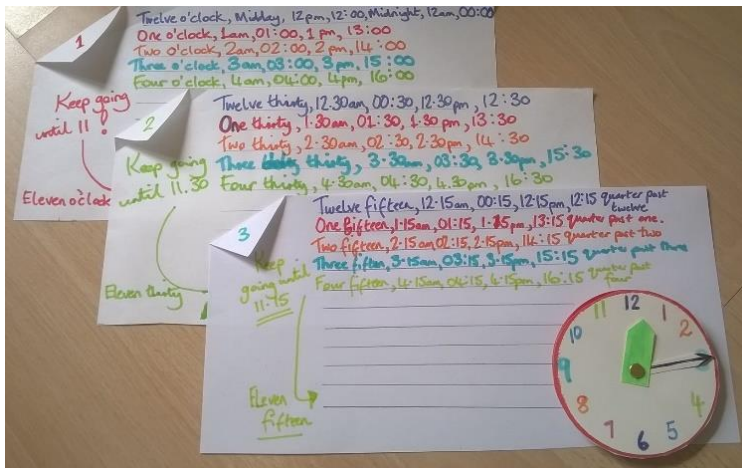 1
Twelve o'clock, Midday, 12pm, 12:00, Midnight, 12am, 00:00
One o'clock, 1am, 01:00, 1pm, 13:00
Two o'clock, 2am, 02:00, 2pm, 14:00
Three o'clock, 3am, 03:00, 3pm, 15:00
Four o'clock, 4am, 04:00, 4pm, 16:00
Keep going
until 11!
Eleven o'clock
2
Twelve thirty, 12.30am, 00:30, 12.30pm, 12:30
One thirty, 1.30am, 01:30, 1.30pm, 13:30
Two thirty, 2.30am, 02:30, 2.30pm, 14:30
Three thirty, 3.30am, 03:30, 3.30pm, 15:30
Four thirty, 4.30am, 04:30, 4.30pm, 16:30
Keep going
until 11.30
Eleven thirty
3
Twelve fifteen, 12.15am, 00:15, 12.15pm, 12:15 quarter past
twelve
One fifteen, 1.15am, 01:15, 1.15pm, 13:15 quarter past one.
Two fifteen, 2.15am, 02:15, 2.15pm, 14:15 quarter past two
Three fiften, 3.15am, 03:15, 3.15pm, 15:15 quarter past three
Four fifteen, 4.15am, 04:15, 4.15pm, 16:15 quarter past
four
Keep
going until
11:15
Eleven
fifteen
12
1
2
4
5
6
7
8
9
10
11